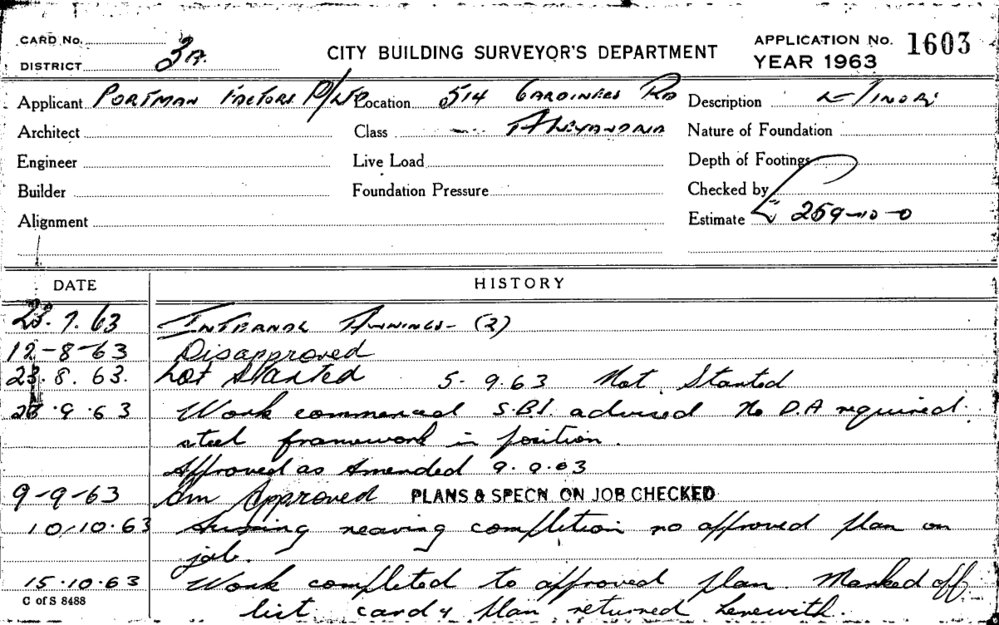 CARD No. CITY BUILDING SURVEYOR'S DEPARTMENT APPLICATION No. 1603
DISTRICT 3A. YEAR 1963
Applicant PORTMAN FACTORS P/L Location 514 GARDINERS RD Description
Architect Class ALEXANDRIA Nature of Foundation
Engineer Live Load Depth of Footings
Builder Foundation Pressure Checked by
Alignment Estimate £ 259-10-0
DATE HISTORY
23.7.63 INTERNAL AWNINGS - (2)
12-8-63 Disapproved
23.8.63. Not Started 5.9.63 Not Started
9.63 Work commenced S.B.I. advised No D.A required.
steel framework in position.
Approved as Amended 9.9.63
9-9-63 Am Approved PLANS & SPECN ON JOB CHECKED
10.10.63 Awning nearing completion no approved plan on
job.
15.10.63 Work completed to approved plan. Marked off
C of S 8488
list card & plan returned herewith.